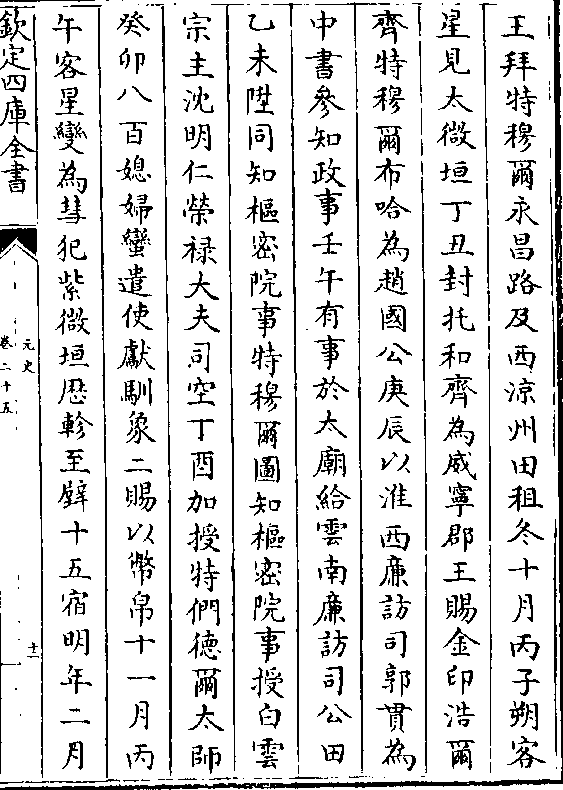 王拜特穆爾永昌路及西涼州田租冬十月丙子朔客
星見太微垣丁丑封托和齊為威寧郡王賜金印浩爾
齊特穆爾布哈為趙國公庚辰以淮西廉訪司郭貫為
中書參知政事壬午有事於太廟給雲南廉訪司公田
乙未陞同知樞密院事特穆爾圖知樞密院事授白雲
宗主沈明仁榮祿大夫司空丁酉加授特們德爾太師
癸卯八百媳婦蠻遣使獻馴象二賜以幣帛十一月丙
午客星變為彗犯紫微垣歴軫至壁十五宿明年二月
欽定四庫全書
元史
卷二十五
十二